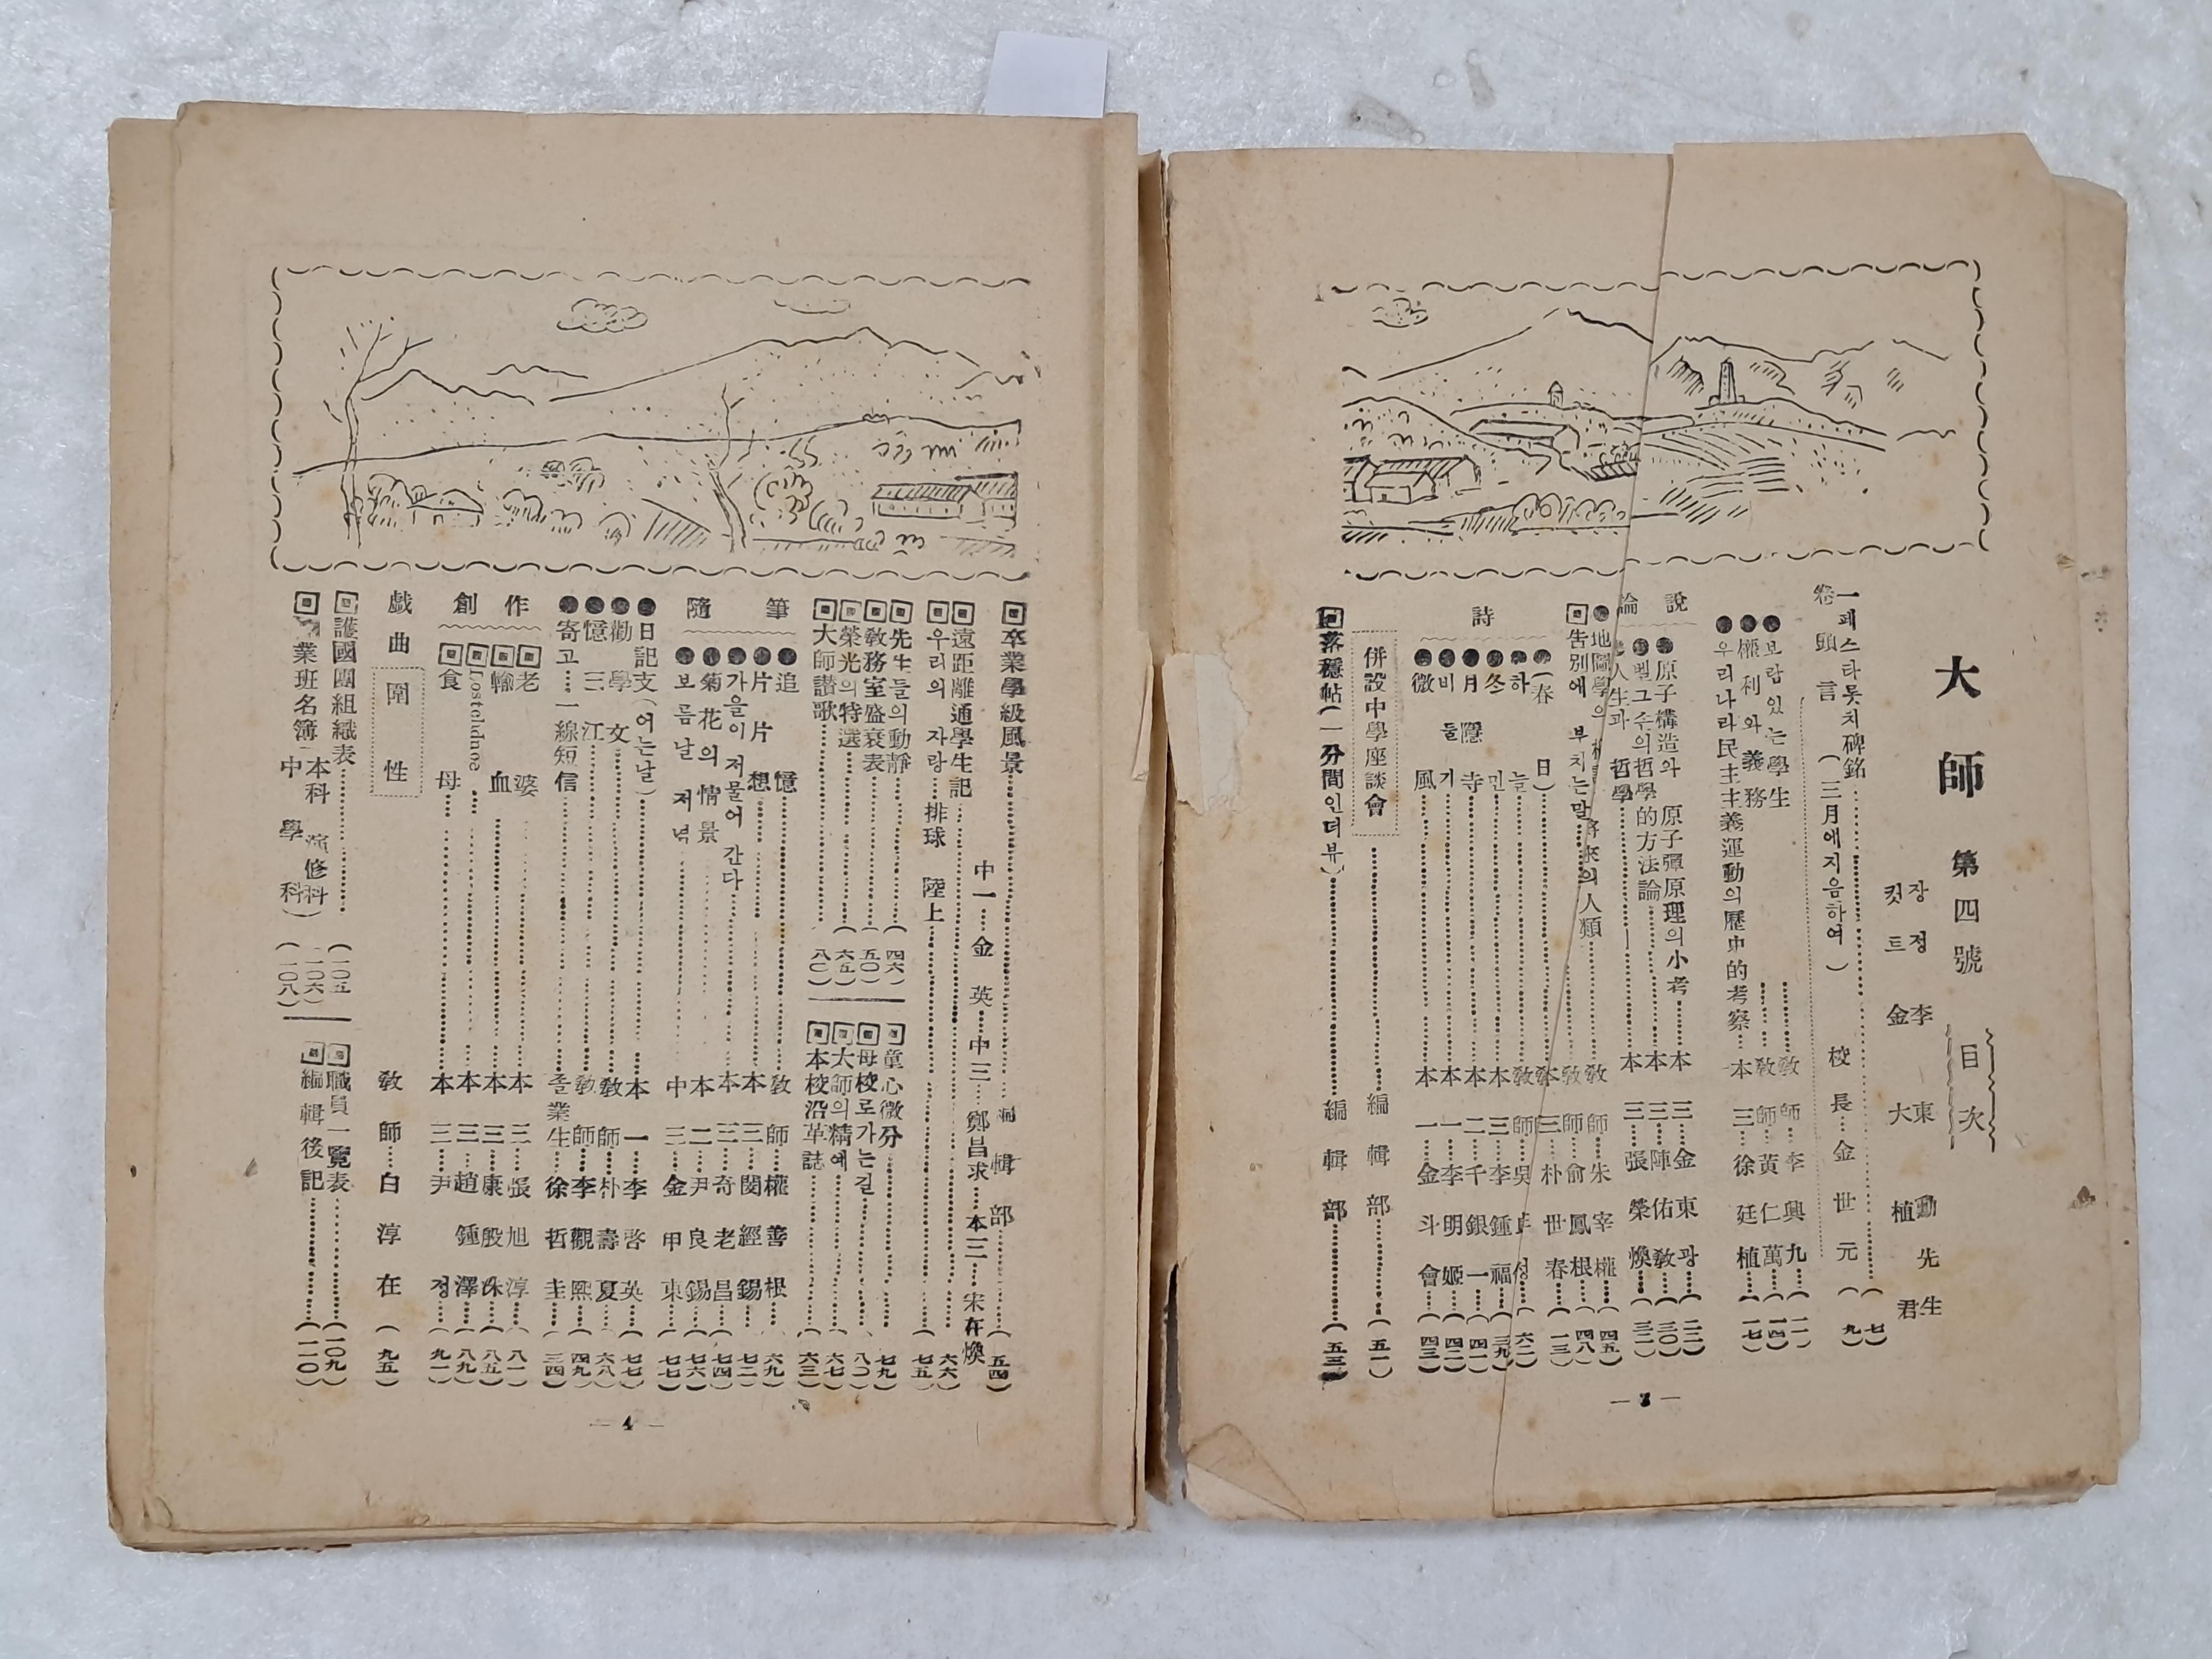 大師 第四號 目次
장정 李東勳先生
컷트 金大植君
一페스타롯치碑銘 (七)
卷頭言 (三月에지음하여) 校長 金世元 (九)
●보람있는學生 敎師 李興九 (一一)
●權利와 義務 敎師 黃仁萬 (一四)
●우리나라民主主義運動의歷史的考察 本三 徐廷植 (一七)
論說
●原子構造와 原子彈原理의小考 本三 金東광 (二二)
●벨그손의哲學的方法論 本三 陣佑敎 (三〇)
●人生과 哲學 本三 張榮煥 (三二)
●地圖學의 將來의人類 敎師 朱宰權 (四五)
回告別에 부치는말 敎師 兪鳳根 (四八)
詩
●(春日) 本三 朴世春 (一三)
●하늘 敎師 吳 (六二)
●冬민 本三 李鍾福 (三九)
●月隱寺 本二 千銀一 (四一)
●비둘기 本一 李明姬 (四二)
●微風 本一 金斗會 (四三)
併設中學座談會 編輯部 (五一)
回落穩帖(一分間인터뷰) 編輯部 (五三)
— 3 —
回卒業學級風景 編輯部 (五四)
回遠距離通學生記 中一 金英 中三 鄭昌求 本三 宋在煥 (六六)
回우리의 자랑 排球 陸上 (七五)
回先生들의動靜 (四六)
回敎務室盛衰表 (五〇)
回榮光의特選 (六五)
回大師讃歌 (八〇)
回童心微分 (七九)
回母校로가는길 (八〇)
回大師의精예 (六七)
回本校沿革誌 (六三)
隨筆
●追憶 敎師 權善根 (六九)
●片片想 本三 閔經錫 (七二)
●가을이 저물어 간다 本三 奇老昌 (七四)
●菊花의 情景 本二 尹良錫 (七六)
●보름날 저녁 中三 金甲東 (七七)
●日記支(어는날) 本一 李啓英 (七七)
●勸學文 敎師 朴壽夏 (六八)
●憶三江 敎師 李觀熙 (四九)
●寄고 一線短信 졸業生 徐哲圭 (三四)
創作
回老婆 本三 張旭淳 (八一)
回輸血 本三 康殷洙 (八五)
回Lostelidnoe 本三 趙鍾澤 (八九)
回食母 本三 尹정 (九一)
戱曲 圍性 敎師 白淳在 (九五)
回護國團組織表 (一〇五)
回 業班名簿 本科 演修科 (一〇六)
中學科) (一〇八)
回職員一覽表 (一〇九)
回編輯後記 (一一〇)
— 4 —